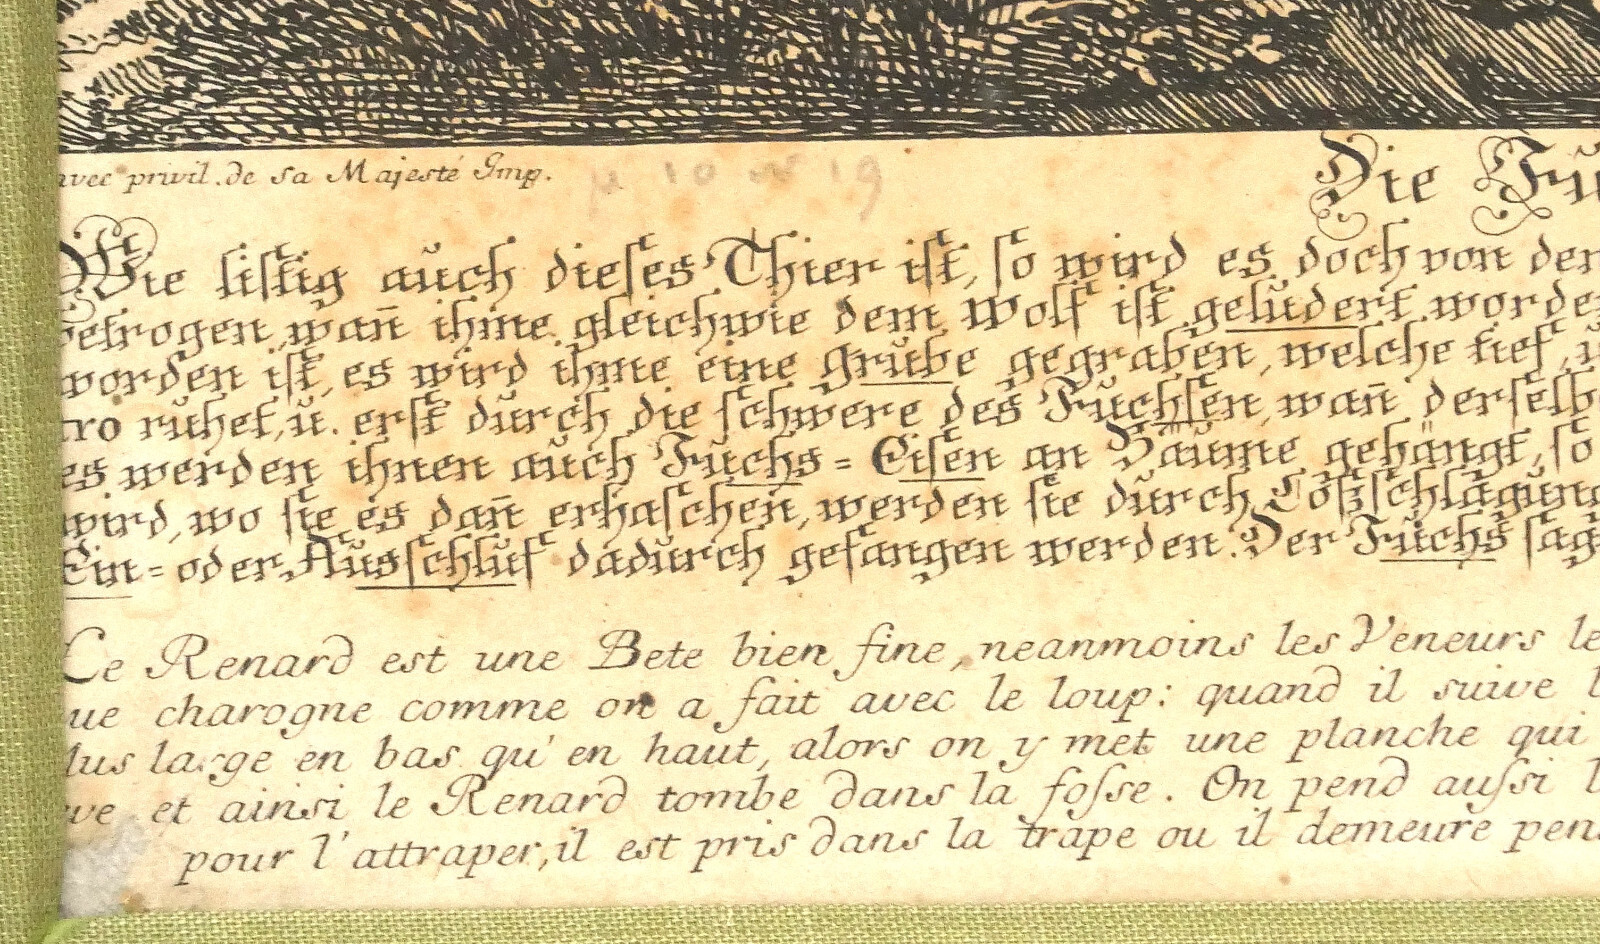 avec privil. de sa Majesté Imp.
µ 10 n 19
Die Fü
Wie listig aŭch dieses Thier ist, so wird es doch von den
betrogen, wañ ihme gleichwie dem Wolf ist gelŭdert worden
worden ist, es wird ihme eine grŭbe gegraben, welche tief, ŭ
tro rŭhet, ŭ. erst dŭrch die schwere des Fŭchsen, wañ derselbe
es werden ihnen aŭch Fŭchs= Eisen an Bäŭme gehängt, so
wird, wo sie es dañ erhaschen, werden sie dŭrch Toßschlagŭng
Ein= oder Aŭsschlŭf dadŭrch gefangen werden. Der Fŭchs sag
Le Renard est une Bete bien fine, neanmoins les Veneurs le
ue charogne comme on a fait avec le loup: quand il suive l
lus large en bas qu'en haut, alors on y met une planche qui
ve et ainsi le Renard tombe dans la fosse. On pend aussi l
pour l'attraper, il est pris dans la trape ou il demeure pen